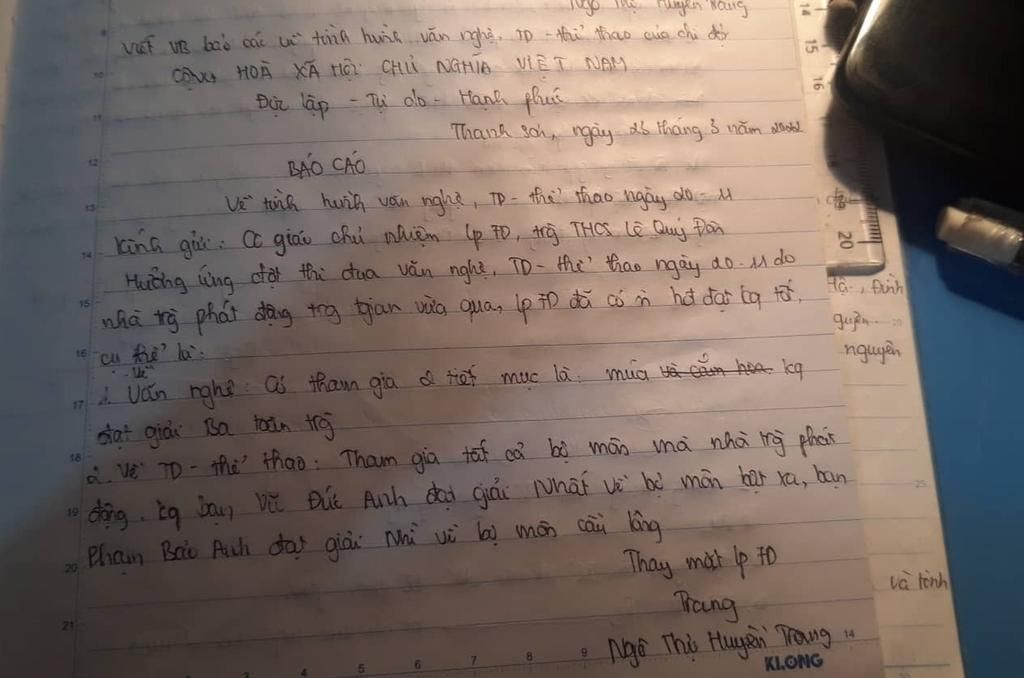 Ngô Thị Huyền Trang
Viết VB báo cáo về tình hình văn nghệ, TD - thể thao của chi đội
CỘNG HOÀ XÃ HỘI CHỦ NGHĨA VIỆT NAM
Độc lập - Tự do - Hạnh phúc
Thanh Sơn, ngày 23 tháng 3 năm 2022
BÁO CÁO
Về tình hình văn nghệ, TD - thể thao ngày 20 - 11
Kính gửi: Cô giáo chủ nhiệm lp 7D, trg THCS Lê Quý Đôn
Hưởng ứng đợt thi đua văn nghệ, TD - thể thao ngày 20 - 11 do
nhà trg phát động trg tgian vừa qua, lp 7D đã có n hđ đạt kq tốt,
cụ thể là:
1. Về Văn nghệ: Có tham gia 2 tiết mục là: múa và cầm hòa kq
đạt giải Ba toàn trg
2. Về TD - thể thao: Tham gia tất cả bộ môn mà nhà trg phát
động. Kq bạn Vũ Đức Anh đạt giải Nhất về bộ môn bật xa, bạn
Phạm Bảo Anh đạt giải Nhì về bộ môn cầu lông
Thay mặt lp 7D
Trang
Ngô Thị Huyền Trang
KLONG
Hộ, Đinh
quyền
nguyên
và tình